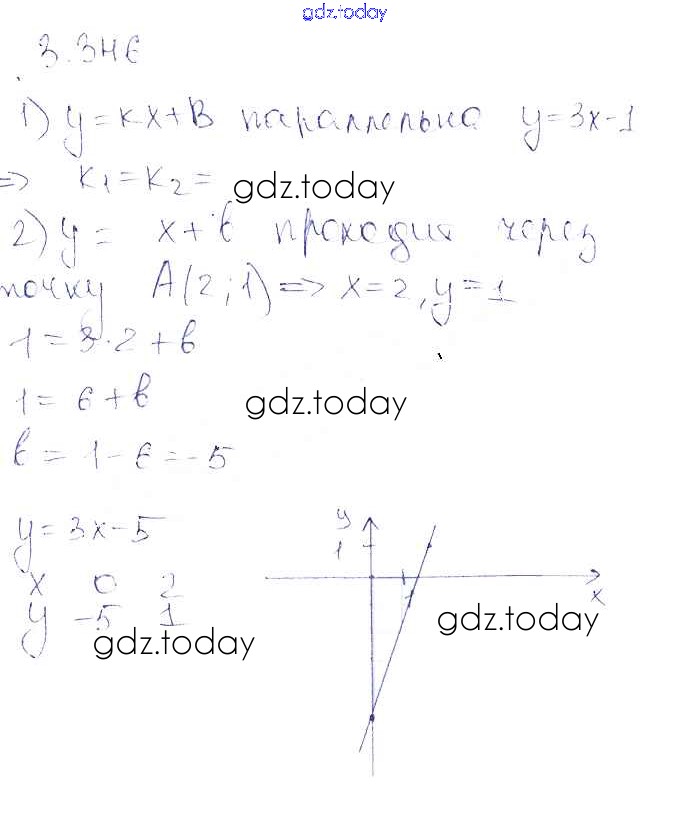 gdz.today
3.346
1) y=kx+b параллельна y=3x-1
=> k₁=k₂= gdz.today
2) y= x+b проходит через
точку A(2;1)=> x=2, y=1
1=3·2+b
1=6+b gdz.today
b=1-6=-5
y=3x-5
x 0 2
y -5 1
gdz.today
y
1
x
1
gdz.today